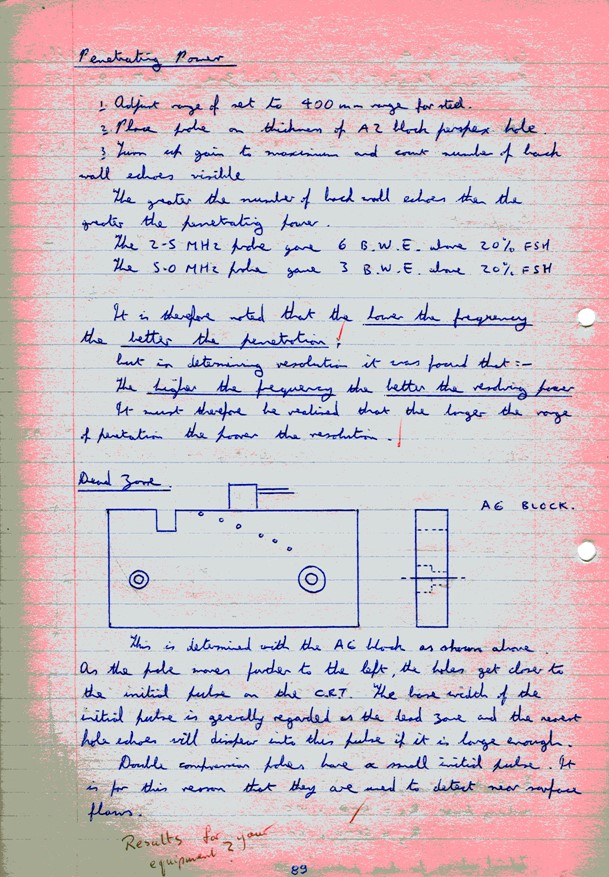 Penetrating Power
1. Adjust range of set to 400 mm range for steel.
2. Place probe on thickness of A2 block perspex hole.
3. Turn up gain to maximum and count number of back
wall echoes visible
The greater the number of back wall echoes then the
greater the penetrating power.
The 2-5 MHz probe gave 6 B.W.E. above 20% FSH
The 5.0 MHz probe gave 3 B.W.E. above 20% FSH
It is therefore noted that the lower the frequency
the better the penetration;
but in determining resolution it was found that :-
The higher the frequency the better the resolving power
It must therefore be realised that the larger the range
of penetration the poorer the resolution.
Dead Zone.
A6 BLOCK.
This is determined with the A6 block as shown above.
As the probe moves further to the left, the holes get closer to
the initial pulse on the C.R.T. The base width of the
initial pulse is generally regarded as the dead zone and the nearest
hole echoes will disappear into this pulse if it is large enough.
Double compression probes have a small initial pulse. It
is for this reason that they are used to detect near surface
flaws.
Results for your
equipment?
89